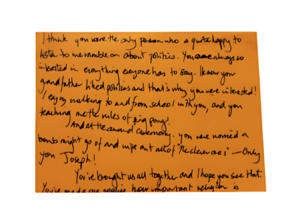 I think you were the only person who is quite happy to
listen to me ramble on about politics. You are always so
interested in everything everyone has to say. I know your
grandfather liked politics and that's why you were interested!
I enjoy walking to and from school with you, and you
teaching me the rules of ping pong!
And at the award ceremony. you were worried a
bomb might go of and wipe out all of "the clever ones" – Only
you Joseph!
You've brought us all together and I hope you see that.
You've made me realise how important religion is